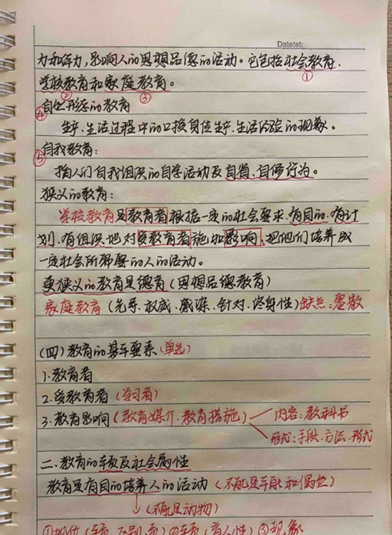 Date:
力和体力,影响人的思想品德的活动。它包括社会教育、
①
学校教育和家庭教育。
② ③
④自然形态的教育
生产、生活过程中的口授身传生产、生活经验的现象。
⑤自我教育:
指人们自我组织的自学活动及自省、自修行为。
狭义的教育:
学校教育是教育者根据一定的社会要求、有目的、有计
划、有组织地对受教育者施加影响,把他们培养成
一定社会所需要的人的活动。
更狭义的教育是德育(思想品德教育)
家庭教育(先导、权威、感染、针对、终身性)
(四)教育的基本要素(单选)
1.教育者
2.受教育者(学习者)
3.教育影响(教育媒介、教育措施) 内容:教科书
形式:手段、方法、形式
二、教育的本质及社会属性
教育是有目的培养人的活动(不能是本能和偶然)
(不能是动物)